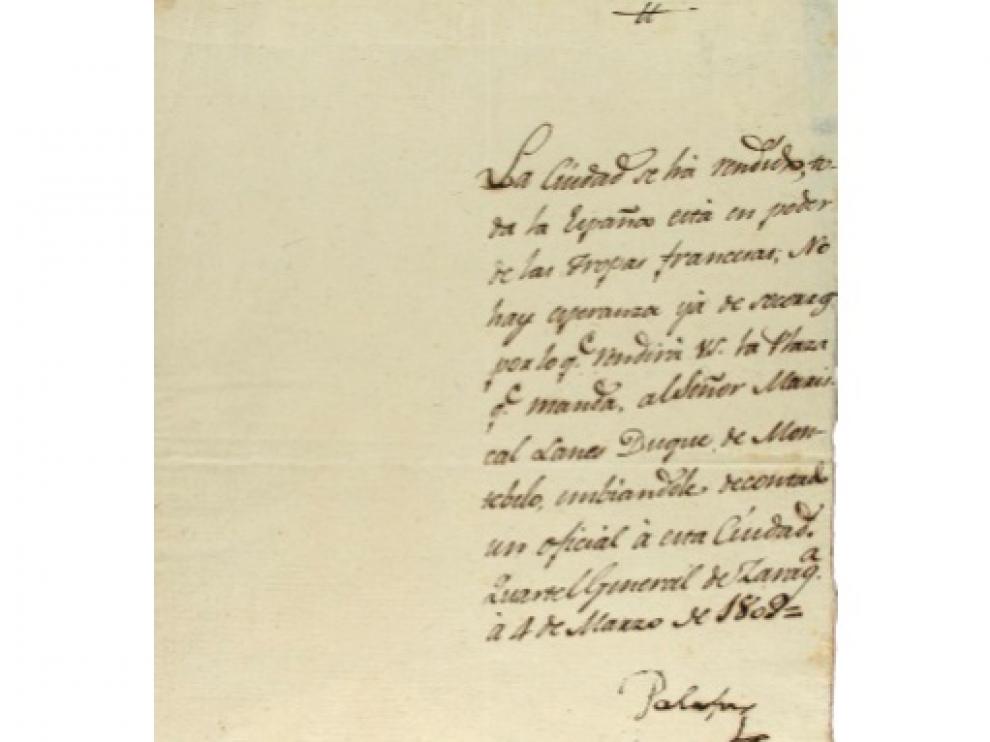 La Ciudad se ha rendido, to-
da la España està en poder
de las tropas francesas, No
hay esperanza yà de
por lo q.e rendirà VS. la Plaza
q.e manda, al Señor Maris-
cal Lanes Duque de Mon-
tebelo, embiandole decontado
un oficial à esta Ciudad.
Quartel General de Zarag.a
à 4 de Marzo de 1809=
Palafox